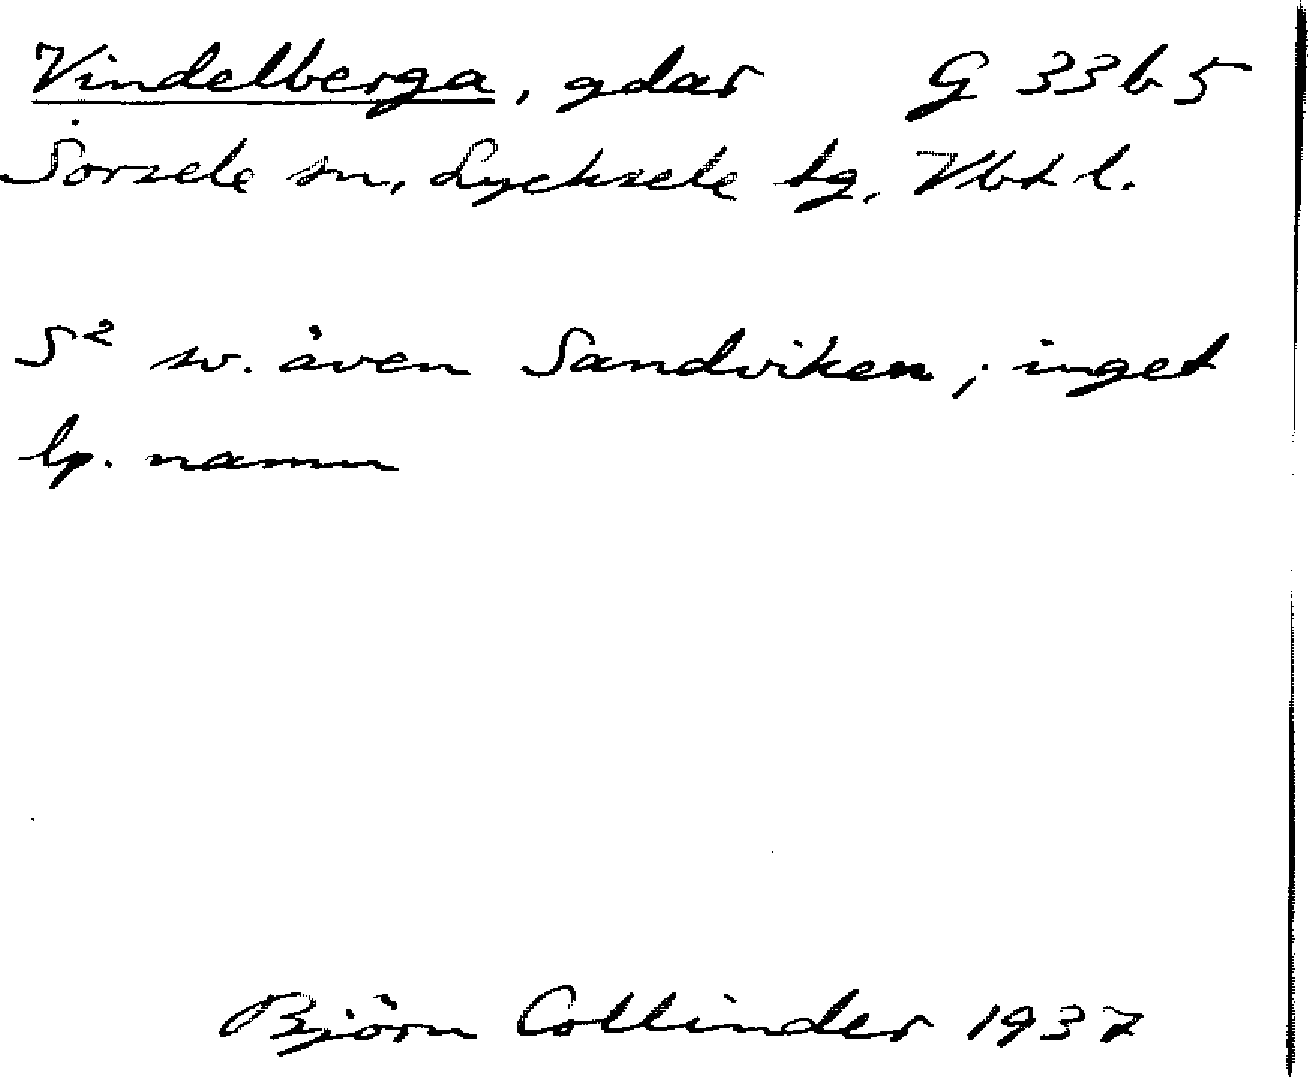 Vindelberga, gdar G 33b5
Sorsele sn, Lycksele tg, Vbtl.
S² sv. även Sandviken; inget
lp. namn
Björn Collinder 1937